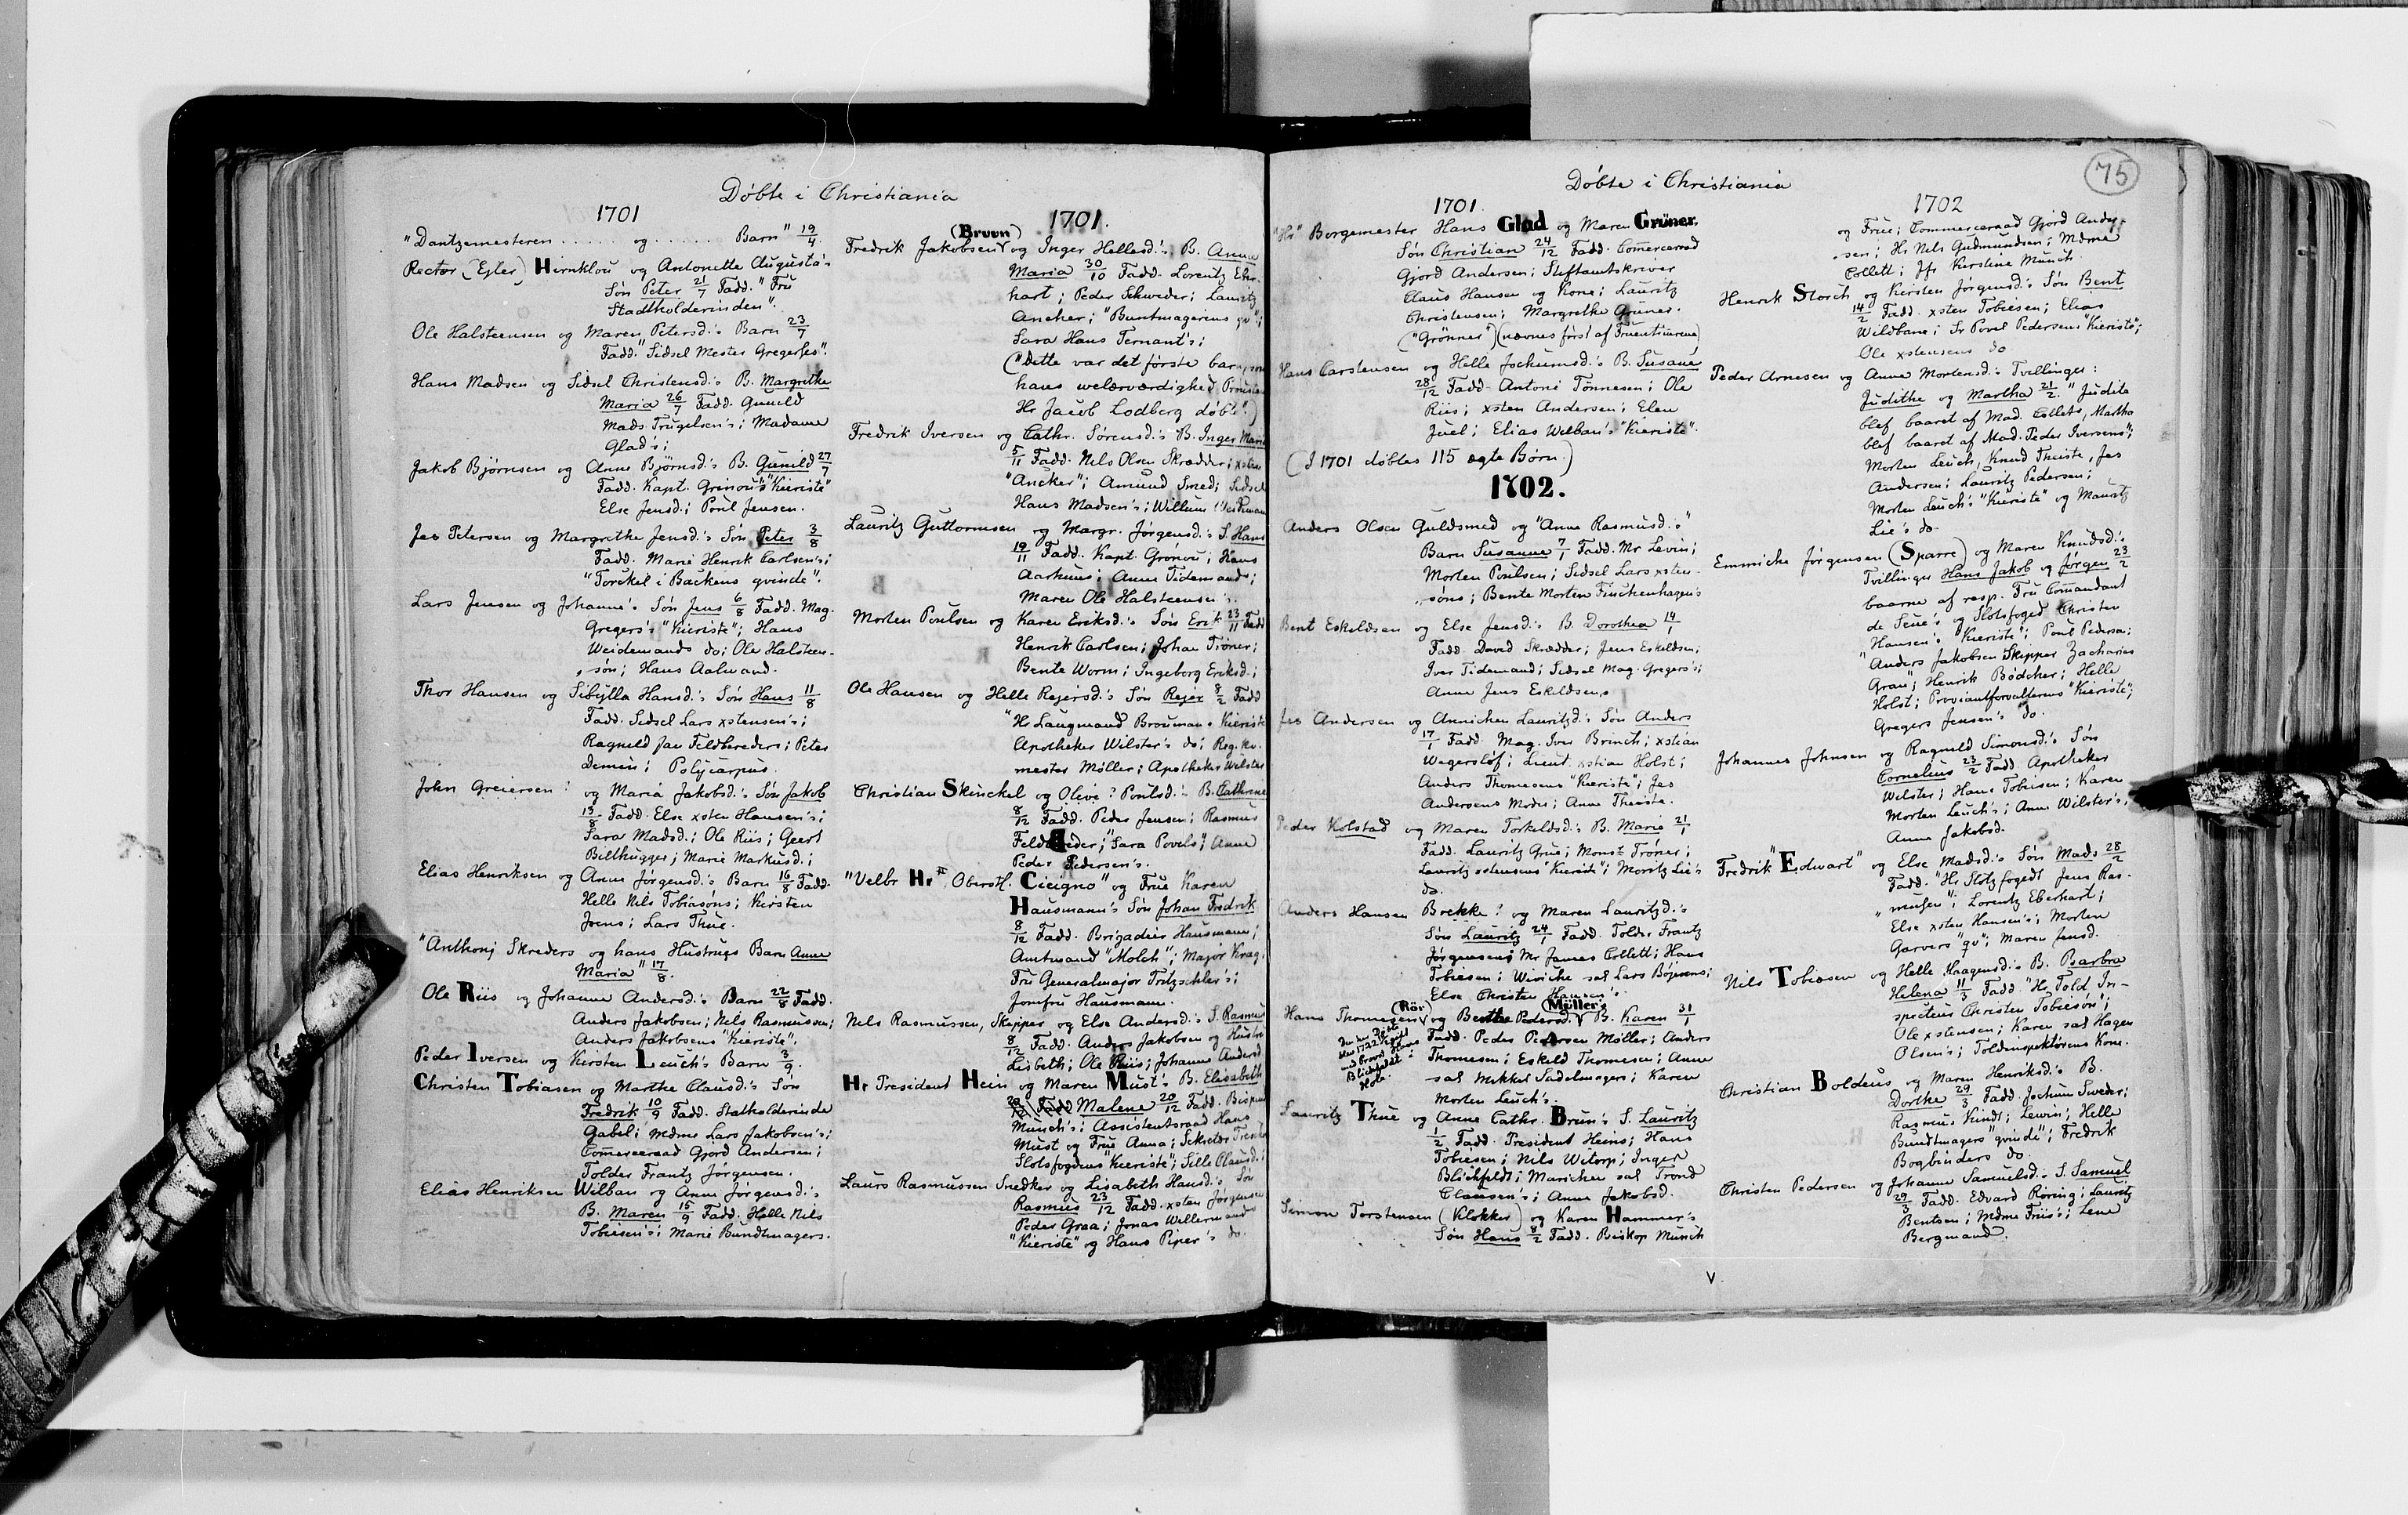 Døbte i Christiania
1701
"Dantzemesteren ...... og ...... Barn" 19/4.
Rector (Ejler) Hirnklou og Antonette Augusta's
Søn Peter 21/7 Fadd. "Fru
Stadtholderinden".
Ole Halsteensen og Maren Petersd.'s Barn 23/7
Fadd. "Sidsel Mester Gregerses".
Hans Madsen og Sidsel Christensd.'s B. Margrethe
Maria 26/7 Fadd. Gunild
Mads Trugelsen's; Madame
Glad's;
Jakob Bjørnsen og Anne Bjørnsd.'s B. Gunild 27/7
Fadd. Kapt. Grønou's "Kieriste"
Else Jensd.; Poul Jensen.
Jes Petersen og Margrethe Jensd.'s Søn Peter 3/8
Fadd. Marie Henrik Carlsen's;
"Torckel i Backens qvinde".
Lars Jensen og Johanne's Søn Jens 6/8 Fadd. Mag.
Gregers's "Kieriste"; Hans
Weidemands do; Ole Halsteen-
søn; Hans Aalmand.
Thor Hansen og Sibylla Hansd.'s Søn Hans 11/8
Fadd. Sidsel Lars xstensen's;
Ragnild Jan Feldbereders; Peter
Demin; Polycarpus.
John Greiersen? og Maria Jakobsd.'s Søn Jakob
13/8 Fadd. Else xsten Hansen's;
Sara Madsd.; Ole Riis; Geert
Bilthugger; Marie Markusd.;
Elias Henriksen og Anne Jørgensd.'s Barn 16/8 Fadd.
Helle Nils Tobiasøns; Kirsten
Joens; Lars Thue.
"Anthonj Skreders og hans Hustrues Barn Anne
Maria" 17/8.
Ole Riis og Johanne Andersd.'s Barn 22/8 Fadd.
Anders Jakobsen; Nels Rasmussen;
Anders Jakobsens "Kieriste".
Peder Iversen og Kirsten Leuch's Barn 3/9.
Christen Tobiasen og Marthe Clausd.'s Søn
Fredrik 10/9 Fadd. Statholderinde
Gabel; Mdme Lars Jakobsen's;
Comerceraad Gjord Andersen;
Tolder Frantz Jørgensen.
Elias Henriksen Wilban og Anne Jørgensd.'s
B. Maren 15/9 Fadd. Helle Nils
Tobiesen's; Marie Bundtmagers.
1701.
Fredrik Jakobsen (Bruun) og Inger Hellesd.'s B. Anna
Maria 30/10 Fadd. Lorentz Ehr-
hart; Peder Schweder; Lauritz
Ancher; "Buntmagerens qv";
Sara Hans Ternant's;
("Dette var det første barn som
hans welærværdighed
Hr Jacob Lodberg døbte".)
Fredrik Iversen og Cathr. Sørensd.'s B. Inger Marie
5/11 Fadd. Nils Olsen Skrædder; xsten
"Ancker"; Amund Smed; Sidsel
Hans Madsen's; Willum
Lauritz Guttormsen og Margr. Jørgensd.'s S. Hans
19/11 Fadd. Kapt. Grønou; Hans
Aarhuus; Anne Tidemands;
Maren Ole Halsteensen's.
Morten Poulsen og Karen Eriksd.'s Søn Erik 23/11 Fadd
Henrik Carlsen; Johan Trøner;
Bente Worm; Ingeborg Eriksd.;
Ole Hansen og Helle Rejersd.'s Søn Rejer 8/2 Fadd
"Hr Laugmand Brouman's Kieriste
Apotheker Wilster's do; Reg.kv.
mester Møller; Apotheker Wilster
Christian Skinckel og Olive? Poulsd.'s B. Cathrine
8/12 Fadd. Peder Jensen; Rasmus
Feldbereder; "Sara Povels"; Anne
Peder Pedersen's.
"Velbr Hr. Oberstl. Cicigno" og Frue Karen
Hausmann's Søn Johan Fredrik
8/12 Fadd. Brigadier Hausmann;
Amtmand "Molch"; Major Krag;
Fru Generalmajor Tritzschler's;
Jomfru Hausmann.
Nils Rasmussen, Skipper og Else Andersd.'s S. Rasmus
8/12 Fadd. Anders Jakobsen og Hustru
Lisbeth; Ole Riis; Johanne Andersd
Hr President Hein og Maren Must's B. Elisabeth
Malene 20/12 Fadd. Bispen
Munch's; Assistentsraad Hans
Must og Frue Anna; Sekretær
Slotsfogdens "Kieriste"; Sille Clausd.;
Laurs Rasmussen Snedker og Lisabeth Hansd.'s Søn
Rasmus 23/12 Fadd. xsten Jørgensen
Peder Graa; Jonas Willermands
"Kieriste" og Hans Piper's do.
Døbte i Christiania
75
1701.
"Hr" Borgemester Hans Glad og Maren Grüner,
Søn Christian 24/12 Fadd. Comercerad
Gjord Andersen; Stiftamtskriver
Claus Hansen og Kone; Lauritz
Christensen; Margrethe Grüner.
("Grønner") (nævnes først af Fruentimrene)
Hans Carstensen og Helle Jochumsd.'s B. Susane
28/12 Fadd. Antoni Tønnesen; Ole
Riis; xsten Andersen; Elen
Juel; Elias Welban's "Kieriste".
(I 1701 døbtes 115 ægte Børn.)
1702.
Anders Olsen Guldsmed og "Anne Rasmusd.'s"
Barn Susanne 7/1 Fadd. Mr Levin;
Morten Poulsen; Sidsel Lars xsten-
søns; Bente Morten Finckenhagen's
Bent Eskildsen og Else Jensd.'s B. Dorothea 14/1
Fadd. David Skrædder; Jens Eskildsen;
Iver Tidemand; Sidsel Mag. Gregers's;
Anne Jens Eskildsens
Jes Andersen og Annichen Lauritzd.'s Søn Anders
17/1 Fadd. Mag. Iver Brinch; xstian
Wegersløf; Lieut. xstian Holst;
Anders Thomesens "Kieriste"; Jes
Andersens Moder; Anne Theiste.
Peder Kolstad og Maren Torkildsd.'s B. Marie 21/1
Fadd. Lauritz Grue; Monst Trøner;
Lauritz xstensens "Kieriste"; Moritz Lie's
do.
Anders Hansen Brekke? og Maren Lauritzd.'s
Søn Lauritz 24/1 Fadd. Tolder Frantz
Jørgensens; Mr James Collett; Hans
Tobiesen; Wiviche sal Lars Böjesens;
Else Christen Hansen's.
Hans Thomesen (Rör) og Berthe Pedersd. (Müller's) B. Karen 31/1
Fadd. Peder Pedersen Møller; Anders
Thomesen; Eskild Thomesen; Anne
sal Mikkel Sadelmagers; Karen
Morten Leuch's.
Lauritz Thue og Anne Cathr. Brun's S. Lauritz
1/2 Fadd. President Heins; Hans
Tobiesen; Nils Witorp; Inger
Blichfeldt; Marichen sal Trond
Clausen's; Anne Jakobsd.
Simon Torstensen (Klokker) og Karen Hammer's
Søn Hans 8/2 Fadd. Biskop Munch
1702
og Frue; Commerceraad Gjord Ander-
sen; Hr Nils Gudmundsen; Mdme
Collett; Jfr Kirstine Munch.
Henrik Storch og Kirsten Jørgensd.'s Søn Bent
14/2 Fadd. xsten Tobiesen; Elias
Wildbane; Sr Povel Pedersens "Kieriste";
Ole xstensens do
Peder Arnesen og Anne Mortensd.'s Tvillinger:
Judithe og Martha 21/2. "Judite
blef baaret af Mad. Collets, Martha
blef baaret af Mad. Peder Iversens";
Morten Leuch, Knud Theiste, Jes
Andersen; Lauritz Pedersen;
Morten Leuch's "Kieriste" og Mauritz
Lie's do.
Emmiche Jørgensen (Sparre) og Maren Knudsd.'s
Tvillinger Hans Jakob og Jørgen 23/2
baarne af resp. Fru Comandant
de Seue's og Slotsfoged Christen
Hansen's "Kieriste"; Poul Pedersen;
"Anders Jakobsen Skipper Zacharias
Graa"; Henrik Bödcher; Helle
Holst; Proviantforvalterens "Kieriste";
Gregers Jensen's do.
Johannes Johnsen og Ragnild Simonsd.'s Søn
Cornelius 23/2 Fadd. Apotheker
Wilster; Hans Tobiesen; Karen
Morten Leuch's; Anne Wilster's;
Anne Jakobsd.
Fredrik "Edwart" og Else Madsd.'s Søn Mads 28/2
Fadd. "Hr Slotzfogedt Jens Ras-
musen"; Lorentz Eberhart;
Else xsten Hansen's; Morten
Garvers "qv"; Maren Jensd.
Nils Tobiasen og Helle Haagensd.'s B. Barbra
Helena 11/3 Fadd. "Hr Told In-
specteur Christen Tobiesøn";
Ole xstensen; Karen sal Hagen
Olsen's; Toldinspektørens Kone.
Christian Boldeus og Maren Henriksd.'s B.
Dorthe 29/3 Fadd. Jochum Sweder;
Rasmus Kindt; Lewin; Helle
Bundtmagers "qvinde"; Fredrik
Bogbinders do.
Christen Pedersen og Johanne Samuelsd.'s S. Samuel
29/3 Fadd. Edvard Röring; Lauritz
Bentsen; Mdme Friis's; Lene
Bergmand.
V